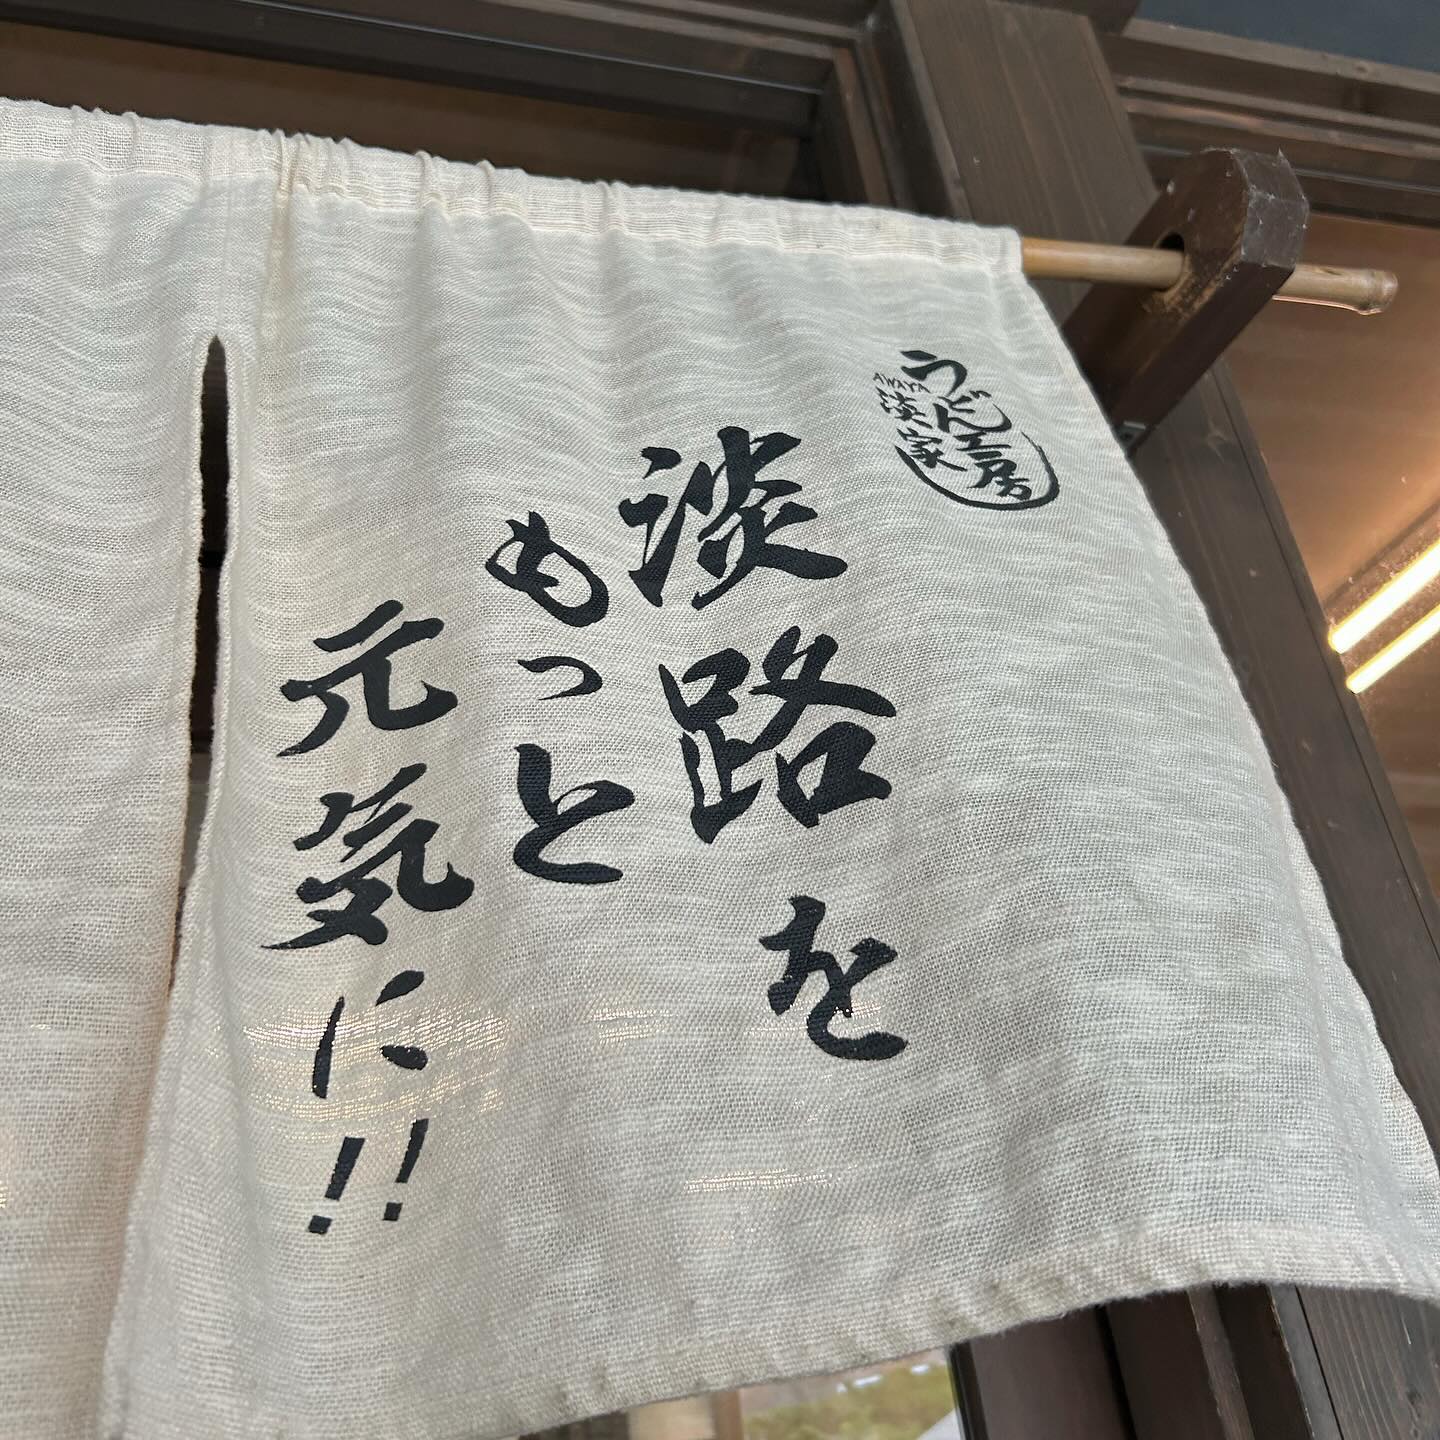 うどん工房
AWAYA
淡家
淡路を
もっと
元気に!!